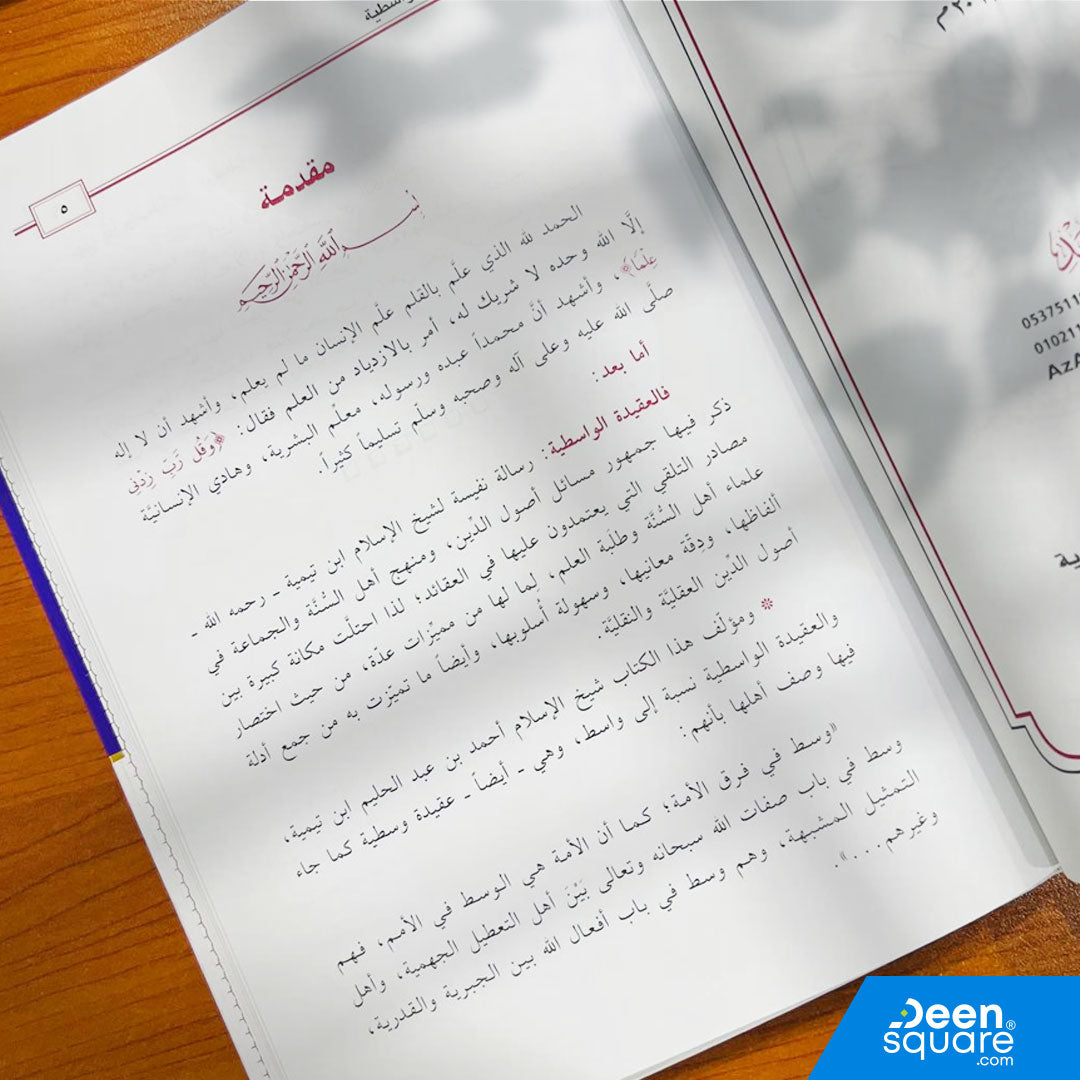 واسطية
٥
مقدمة
بِسْمِ اللَّهِ الرَّحْمَٰنِ الرَّحِيمِ
الحمد لله الذي علَّم بالقلم علَّم الإنسان ما لم يعلم، وأشهد أن لا إله
إلَّا الله وحده لا شريك له، أمر بالازدياد من العلم فقال: ﴿وَقُل رَّبِّ زِدْنِي
عِلْمًا﴾، وأشهد أنَّ محمداً عبده ورسوله، معلِّم البشرية، وهادي الإنسانيَّة
صلَّى الله عليه وعلى آله وصحبه وسلَّم تسليماً كثيراً.
أما بعد:
فالعقيدة الواسطية: رسالة نفيسة لشيخ الإسلام ابن تيمية - رحمه الله -
ذكر فيها جمهور مسائل أصول الدِّين، ومنهج أهل السُّنَّة والجماعة في
مصادر التلقي التي يعتمدون عليها في العقائد؛ لذا احتلَّت مكانة كبيرة بين
علماء أهل السُّنَّة وطلَبة العلم، لِما لها من مميِّزات عدَّة، من حيث اختصار
ألفاظها، ودِقَّة معانيها، وسهولة أسلوبها، وأيضاً ما تميّزت به من جمع أدلة
أصول الدِّين العقليَّة والنقليَّة.
* ومؤلّف هذا الكتاب شيخ الإسلام أحمد بن عبد الحليم ابن تيمية،
والعقيدة الواسطية نسبة إلى واسط، وهي - أيضاً - عقيدة وسطية كما جاء
فيها وصف أهلها بأنهم:
«وسط في فرق الأمة؛ كما أن الأمة هي الوسط في الأمم، فهم
وسط في باب صفات الله سبحانه وتعالى بَيْنَ أهل التعطيل الجهمية، وأهل
التمثيل المشبهة، وهم وسط في باب أفعال الله بين الجبرية والقدرية،
وغيرهم...».
م
0537511
010211
AzA
ية
Deen
square®
.com